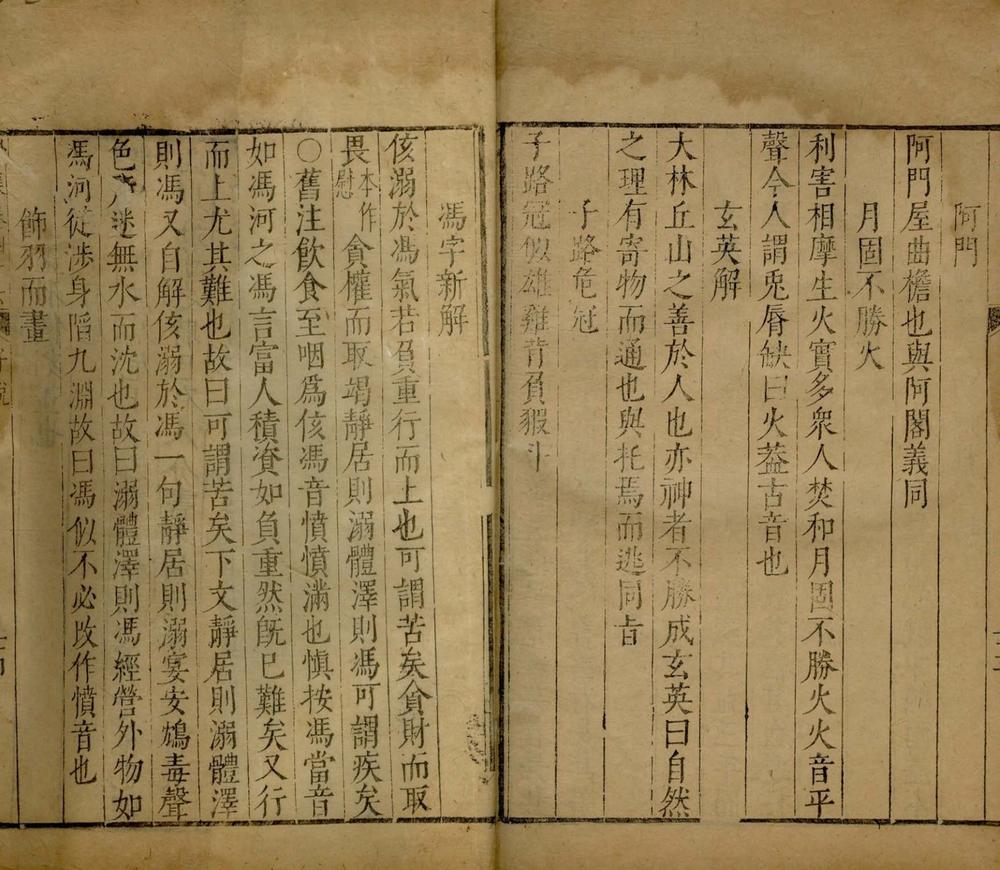 阿門
阿門屋曲檐也與阿閣義同
月固不勝火
利害相摩生火實多衆人焚和月固不勝火火音平
聲今人謂兎脣缺曰火葢古音也
玄英解
大林丘山之善於人也亦神者不勝成玄英曰自然
之理有寄物而通也與托焉而逃同旨
子路危冠
子路冠似雄雞背負豭斗
馮字新解
侅溺於馮氣若負重行而上也可謂苦矣貪財而取
畏本作慰貪權而取竭靜居則溺體澤則馮可謂疾矣
○舊注飲食至咽爲侅馮音憤憤滿也愼按馮當音
如馮河之馮言富人積資如負重然旣已難矣又行
而上尤其難也故曰可謂苦矣下文靜居則溺體澤
則馮又自解侅溺於馮一句靜居則溺宴安鴆毒聲
色迷無水而沈也故曰溺體澤則馮經營外物如
馮河徒涉身陷九淵故曰馮似不必改作憤音也
飾羽而畫